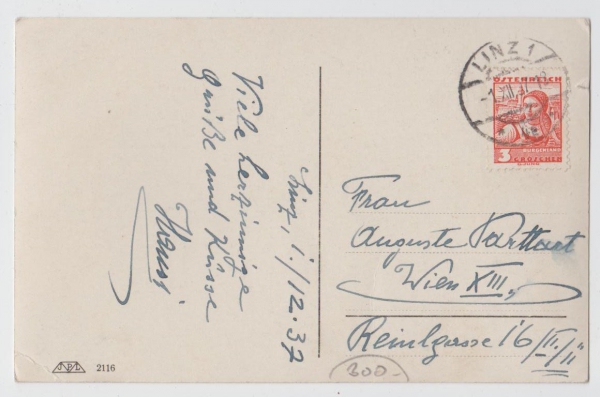 Linz, 1./12.37
Viele herzinnige
Grüße und Küsse
LINZ 1
ÖSTERREICH
BURGENLAND
3 GROSCHEN
Frau
Auguste
Wien XIII.,
Reinlgasse 16/II./11
300.-
JPL 2116